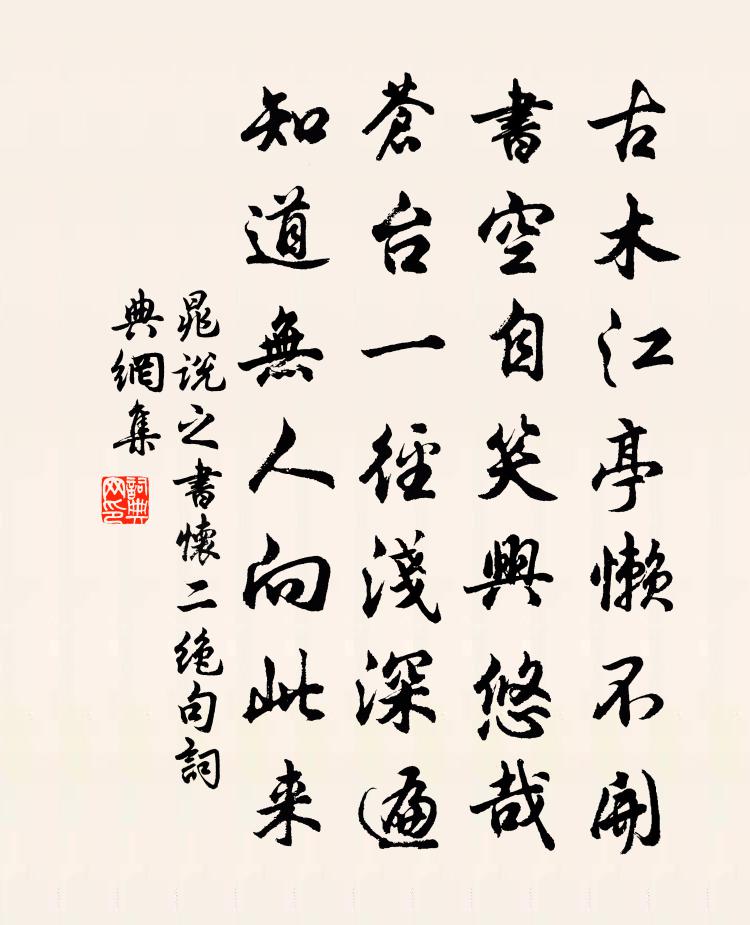 古木江亭懒不開
書空自笑興悠哉
蒼台一徑淺深遍
知道無人向此来
晁説之書懷二絶句詞
典網集
詞典网印